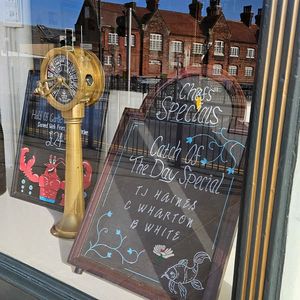 Chefs
Specials
Catch of
The Day Special
TJ HAINES
C WHARTON
B WHITE